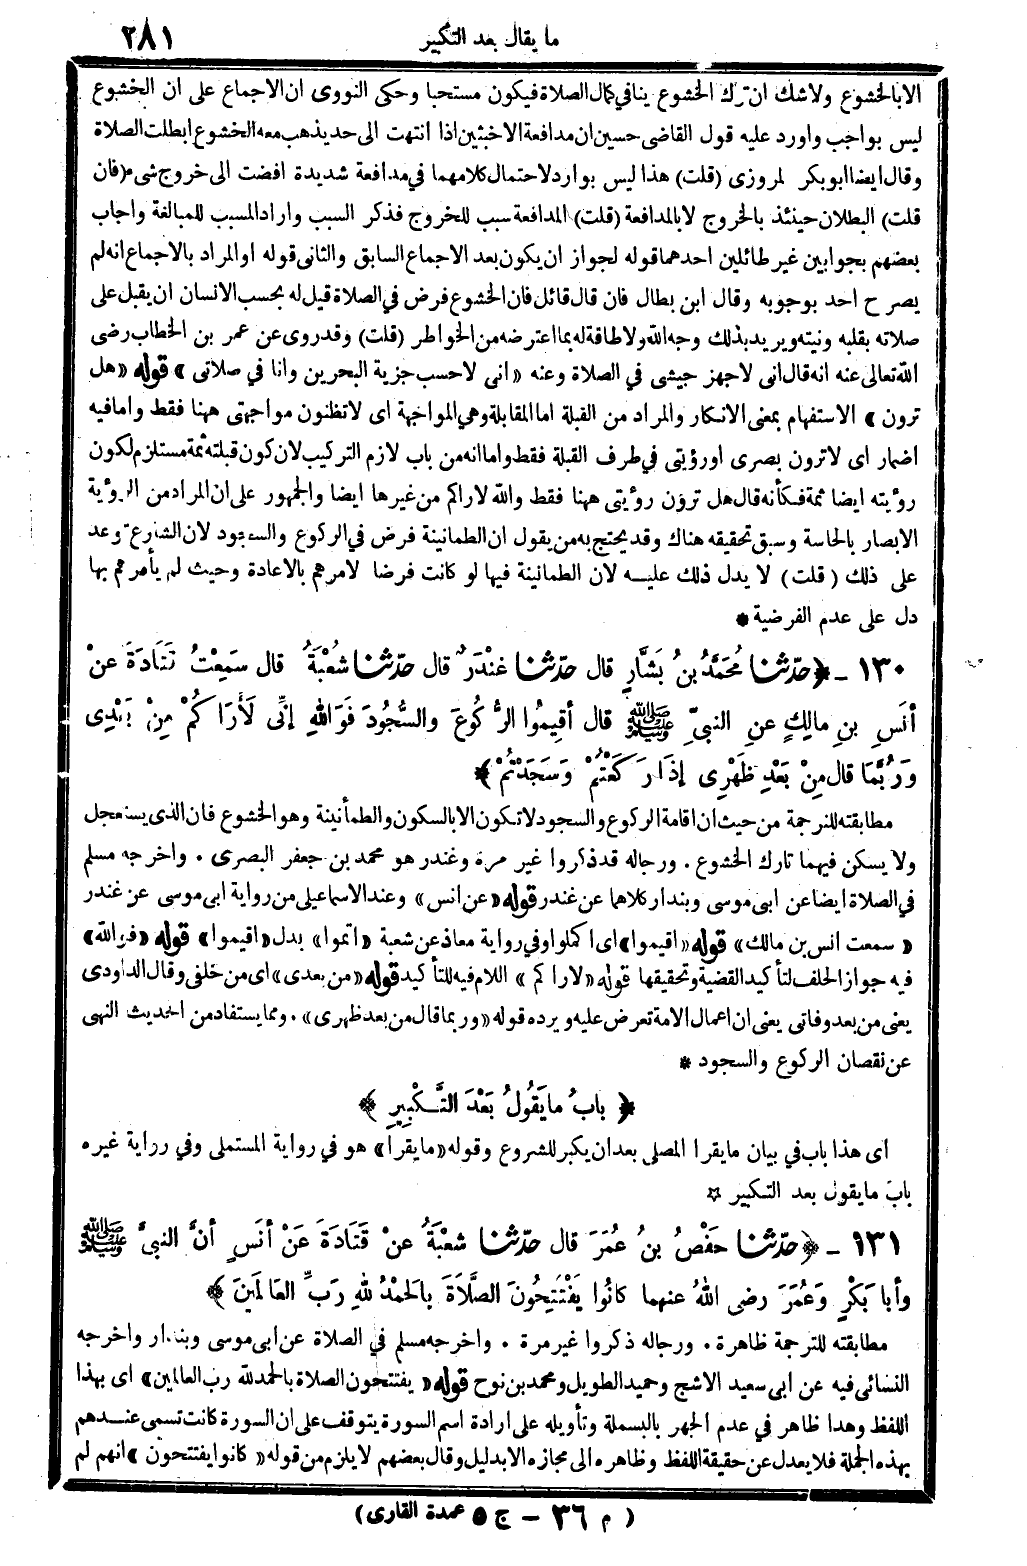 ما يقال بعد التكبير ٢٨١
الا بالخشوع ولا شك ان ترك الخشوع ينافي كمال الصلاة فيكون مستحبا وحكى النووى ان الاجماع على ان الخشوع
ليس بواجب واورد عليه قول القاضى حسين ان مدافعة الاخبثين اذا انتهت الى حد يذهب معه الخشوع ابطلت الصلاة
وقال ايضا ابو بكر لمروزى (قلت) هذا ليس بوارد لاحتمال كلامهما في مدافعة شديدة افضت الى خروج شىء (فان
قلت) البطلان حينئذ بالخروج لا بالمدافعة (قلت) المدافعة سبب للخروج فذكر السبب واراد المسبب للمبالغة واجاب
بعضهم بجوابين غير طائلين احدهما قوله لجواز ان يكون بعد الاجماع السابق والثانى قوله او المراد بالاجماع انه لم
يصرح احد بوجوبه وقال ابن بطال فان قال قائل فان الخشوع فرض في الصلاة قيل له بحسب الانسان ان يقبل على
صلاته بقلبه ونيته ويريد بذلك وجه الله ولا طاقة له بما اعترضه من الخواطر (قلت) وقد روى عن عمر بن الخطاب رضى
الله تعالى عنه انه قال انى لاجهز جيشى في الصلاة وعنه « انى لاحسب جزية البحرين وانا في صلاتى » قوله « هل
ترون » الاستفهام بمعنى الانكار والمراد من القبلة اما المقابلة وهي المواجهة اى لا تظنون مواجهتى ههنا فقط واما فيه
اضمار اى لا ترون بصرى او رؤيتى في طرف القبلة فقط واما انه من باب لازم التركيب لان كون قبلته ثمة مستلزم لكون
رؤيته ايضا ثمة فكأنه قال هل ترون رؤيتى ههنا فقط والله لاراكم من غيرها ايضا والجمهور على ان المراد من الرؤية
الابصار بالحاسة وسبق تحقيقه هناك وقد يحتج به من يقول ان الطمانينة فرض في الركوع والسجود لان الشارع توعد
على ذلك ( قلت ) لا يدل ذلك عليه لان الطمانينة فيها لو كانت فرضا لامرهم بالاعادة وحيث لم يأمرهم بها
دل على عدم الفرضية *
١٣٠ - ﴿ حَدَّثَنَا مُحَمَّدُ بنُ بَشَّارٍ قال حَدَّثَنَا غُنْدَرٌ قال حَدَّثَنَا شُعْبَةُ قال سَمِعْتُ قَتَادَةَ عنْ
أنَسِ بنِ مالِكٍ عنِ النبيِّ ﷺ قال أقِيمُوا الرُّكُوعَ والسُّجُودَ فَوَاللهِ إنِّى لَأَرَاكُمْ مِنْ بَعْدِى
وَرُبَّمَا قال مِنْ بَعْدِ ظَهْرِى إذَا رَكَعْتُمْ وَسَجَدْتُمْ ﴾
مطابقته للترجمة من حيث ان اقامة الركوع والسجود لا تكون الا بالسكون والطمأنينة وهو الخشوع فان الذى يستعجل
ولا يسكن فيهما تارك الخشوع . ورجاله قد ذكروا غير مرة وغندر هو محمد بن جعفر البصرى . واخرجه مسلم
في الصلاة ايضا عن ابى موسى وبندار كلاهما عن غندر قوله « عن انس » وعند الاسماعيلى من رواية ابى موسى عن غندر
« سمعت انس بن مالك » قوله « اقيموا » اى اكملوا وفي رواية معاذ عن شعبة « اتموا » بدل « اقيموا » قوله « فوالله »
فيه جواز الحلف لتأكيد القضية وتحقيقها قوله « لاراكم » اللام فيه للتأكيد قوله « من بعدى » اى من خلفى وقال الداودى
يعنى من بعد وفاتى يعنى ان اعمال الامة تعرض عليه ويرده قوله « وربما قال من بعد ظهرى » . ومما يستفاد من الحديث النهى
عن نقصان الركوع والسجود *
﴿ بابُ ما يَقُولُ بَعْدَ التَّكْبِيرِ ﴾
اى هذا باب في بيان ما يقرا المصلى بعد ان يكبر للشروع وقوله « ما يقرا » هو في رواية المستملى وفي رواية غيره
باب ما يقول بعد التكبير ☆
١٣١ - ﴿ حَدَّثَنَا حَفْصُ بنُ عُمَرَ قال حَدَّثَنَا شُعْبَةُ عنْ قَتَادَةَ عَنْ أنَسٍ أنَّ النبيَّ ﷺ
وأبا بَكْرٍ وَعُمَرَ رضى اللهُ عنهما كانُوا يَفْتَتِحُونَ الصَّلَاةَ بِالحَمْدُ للهِ رَبِّ العَالَمِينَ ﴾
مطابقته للترجمة ظاهرة . ورجاله ذكروا غير مرة . واخرجه مسلم في الصلاة عن ابى موسى وبندار واخرجه
النسائى فيه عن ابى سعيد الاشج وحميد الطويل ومحمد بن نوح قوله « يفتتحون الصلاة بالحمد لله رب العالمين » اى بهذا
اللفظ وهذا ظاهر في عدم الجهر بالبسملة وتأويله على ارادة اسم السورة يتوقف على ان السورة كانت تسمى عندهم
بهذه الجملة فلا يعدل عن حقيقة اللفظ وظاهره الى مجازه الا بدليل وقال بعضهم لا يلزم من قوله « كانوا يفتتحون » انهم لم
( م ٣٦ - ج ٥ عمدة القارى )